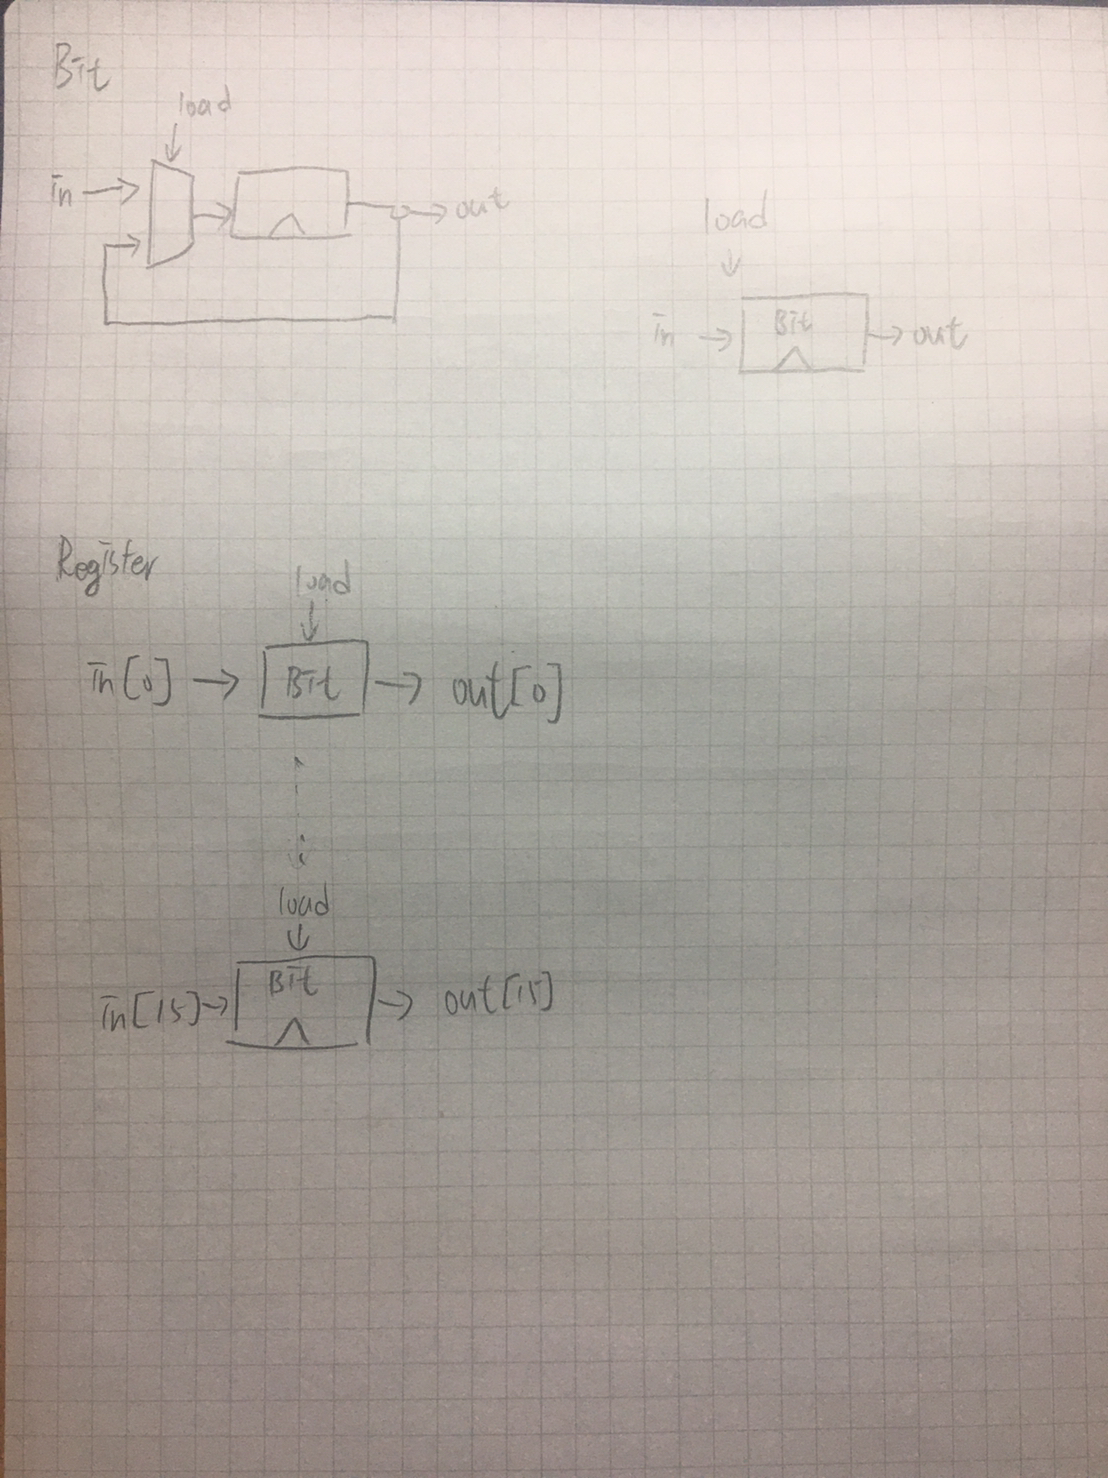 Bit
load
in
out
load
in
Bit
out
Register
load
in[0]
Bit
out[0]
load
in[15]
Bit
out[15]